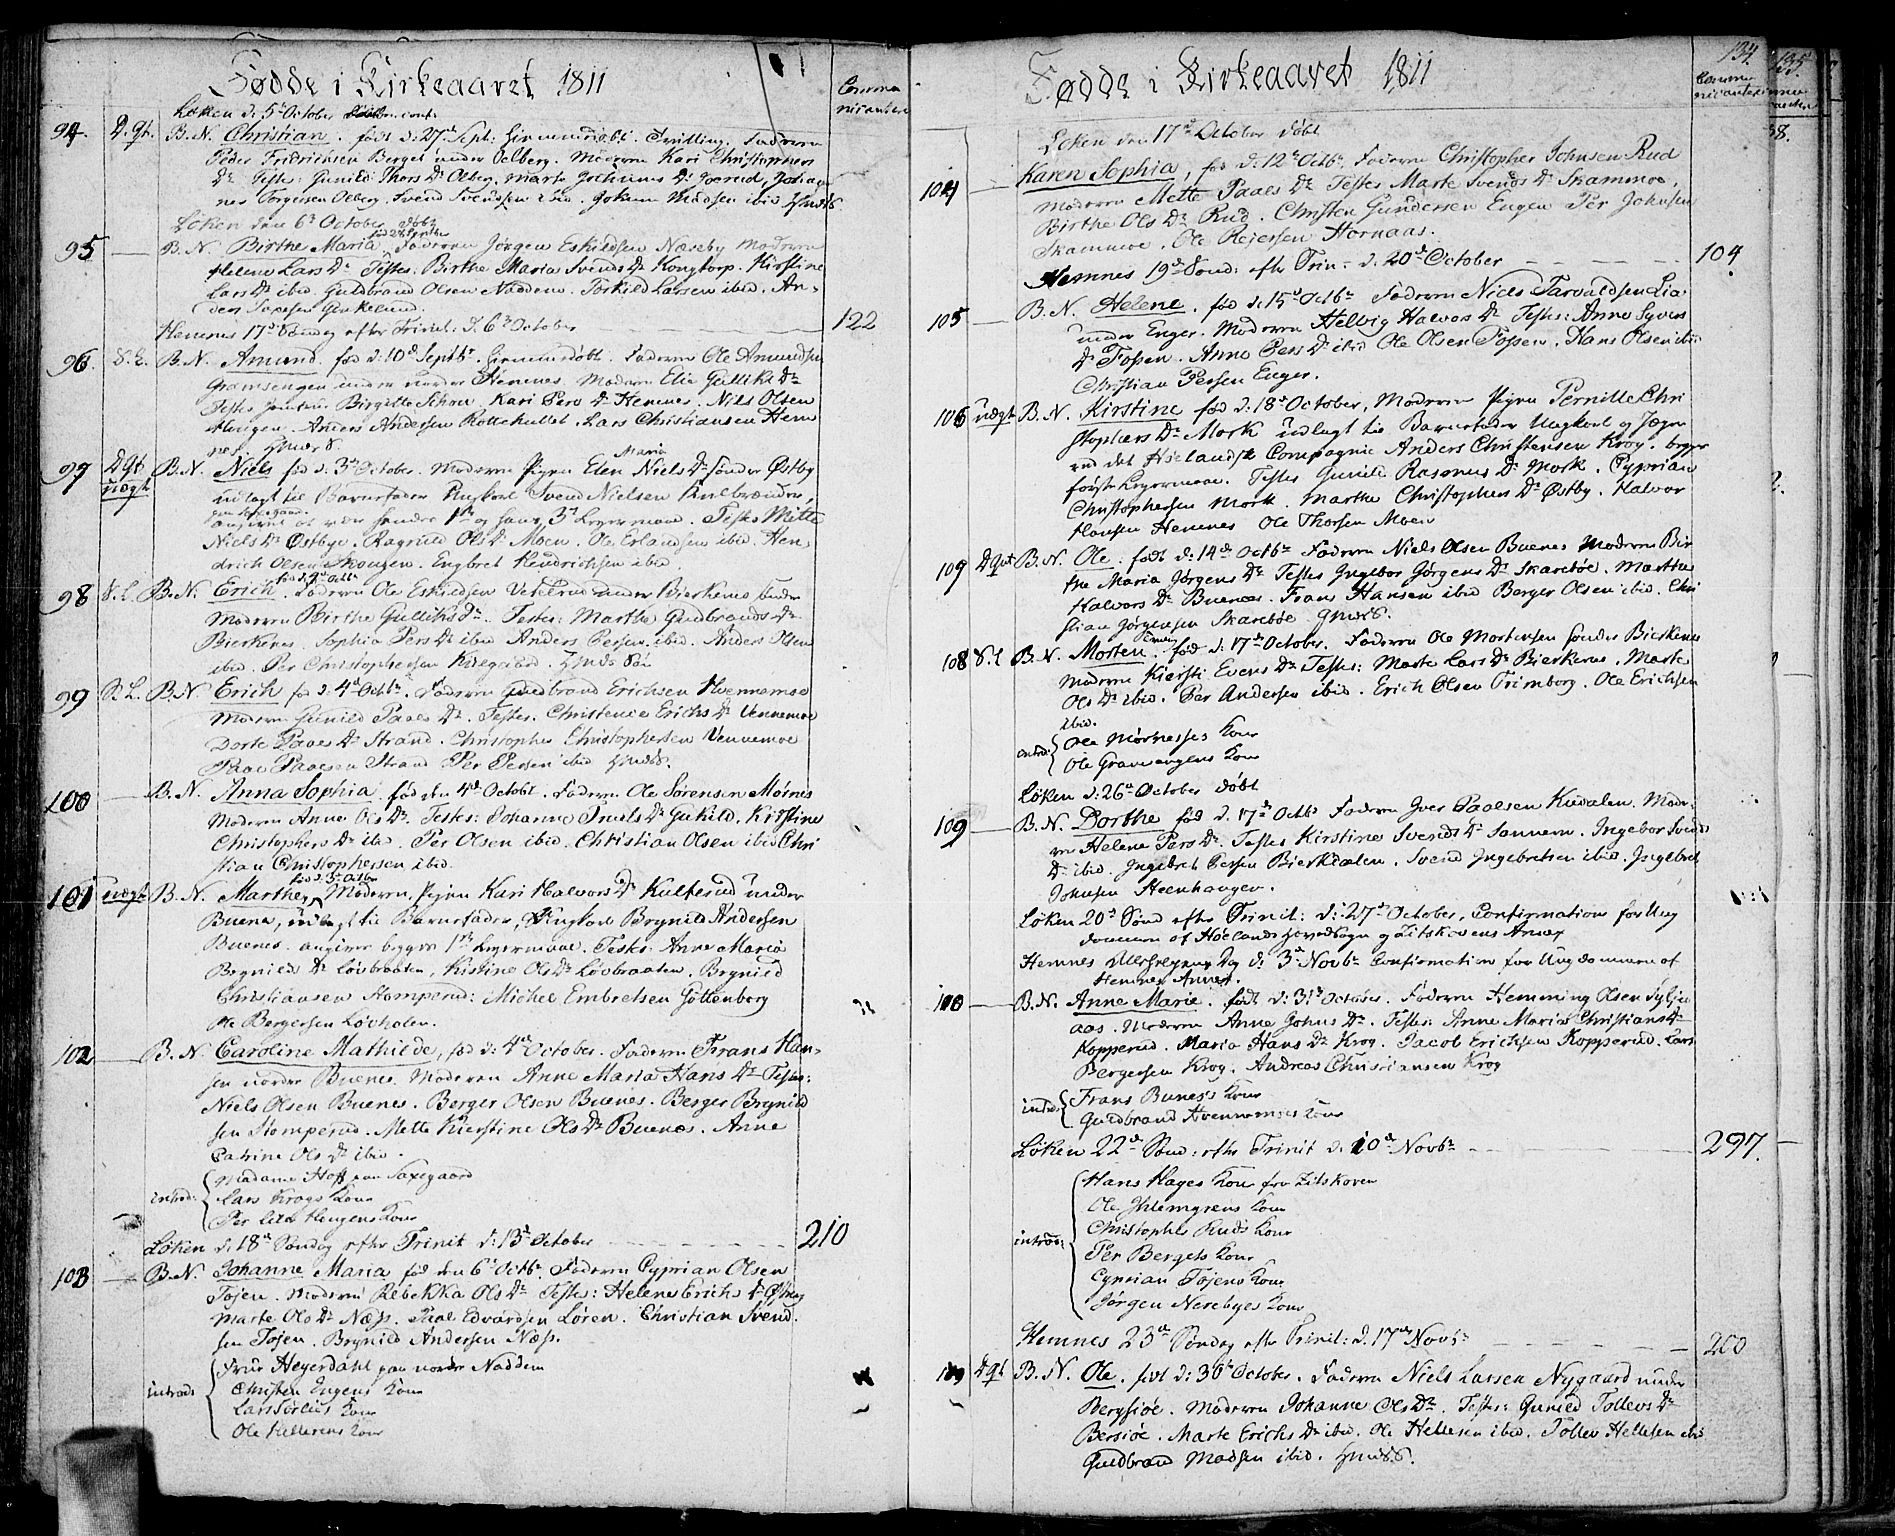 Fødde i Kirkeaaret 1811
Commu
nicantere
Løken d: 5t October
94. D.gt. B.N. Christian. født d: 27de Sept: hiemmedøbt. Tvilling. Faderen
Peder Fridrichsen Berget under Oelberg. Moderen Kari Christophers
Dr Testes: Gunild Thors Dr Olberg, Marte Jochums Dr Joerud, Johan
nes Torgersen Olberg. Svend Svendsen ibid. Johan Madsen ibid
Løken den 6t October døbt
født 28 Septbr
95 — B.N. Birthe Maria. Faderen Jørgen Eskildsen Næseby Moderen
Helene Lars Dr Testes: Birthe Maria Svends Dr Kongtorp. Kirstine
Lars Dr ibid. Guldbrand Olsen Naddem. Torkild Larsen ibid. An-
ders
Hemnes 17de Søndag efter Trinit: d. 6t October — 122
96. S.L. B.N. Amund. fød d: 10de Septbr. hiemmedøbt. Faderen Ole Amundsen
Gramsengen under nordre Hemnes. Moderen Elie Gulliks Dr
Testes Jomfru Birgitte Schou. Kari Pers Dr Hemnes. Niels Olsen
Haugen. Anders Andersen Kottehullet. Lars Christiansen Hem
nes.
97 Dgt B.N. Niels fød d: 3de October. Moderen Pigen Elen Maria Niels Dr Søndre Østby
uægt udlagt til Barnefader Ungkarl Svend Nielsen
angivet at være hendes 1te og hans 3de Leyermaal. Testes Mette
Niels Dr Østbye. Ragnild Ols Dr Moen. Ole Erlandsen ibid. Hen-
drich Olsen Skougen. Engbret Hendrichsen ibid.
98 S.L. B.N. Erich. Faderen Ole Eskildsen under Bierkenes Søndre
Moderen Birthe Gulliks Dr. Testes: Marthe Guldbrands Dr
Bierkenes. Sophia Pers Dr ibid Anders Persen ibid. Anders Olsen
ibid. Per Christophersen
99 S.L. B.N. Erich fø d: 4de Octbr. Faderen Guldbrand Erichsen Hvennemoe
Moderen Gunild Paals Dr. Testes. Christence Erichs Dr Vennemoe
Dorte Paals Dr Strand. Christopher Christophersen Vennemoe
Paal Paalsen Strand Per Persen ibid
100 — B.N. Anna Sophia. fød den 4de Octobr. Faderen Ole Sørensen Moines
Moderen Anne Ols Dr. Testes: Johanne Truels Dr Gukild. Kirstine
Christophers Dr ibid. Per Olsen ibid. Christian Olsen ibid Chri
stian Christophersen ibid.
fød d. 5t Octbr
101 uægt B.N. Marthe, Moderen, Pigen Kari Halvors Dr Kulterud under
Buenæ, udlagt til Barnefader, Ungkarl Brynild Andersen
Buenes. angiver begges 1te Leyermaal. Testes: Anne Maria
Brynilds Dr Løvbraaten, Kistine Ols Dr Løvbraaten. Brynild
Christiansen Homperud: Michel Embretsen Gøttenborg
Ole Bergersen Løvholen.
102 — B.N. Caroline Mathilde, fød d: 4de October. Faderen Frans Han-
sen nordre Buenes. Moderen Anne Maria Hans Dr Testes:
Niels Olsen Buenes. Berger Olsen Buenes. Berger Brynild
sen Homperud. Mette Kierstine Ols Dr Buenæs. Anne
Catrine Ols Dr ibid.
introd: Madame Hoff paa Saxegaard
Lars Krogs Kone
Per Haugens Kone
Løken d: 18de Søndag efter Trinit d: 13de October — 210
103 — B.N. Johanne Maria fød den 6te Octbr. Faderen Cyprian Olsen
Tøjen. Moderen Rebekka Ols Dr Testes: Helene Erichs Dr
Marte Ols Dr Næss. Paal Edvardsen Løren. Christian Svend
sen Tøjen. Brynild Andersen Næss.
introd: Frue Heyerdahl paa nordre Naddem
Christen Engens Kone
Lars Sørlies Kone
Ole Hellerens Kone
Fødde i Kirkeaaret 1811
134.
Commu
nicantere
Løken den 17de October døbt
104 — Karen Sophia, fød d: 12te Octbr. Faderen Christopher Johnsen Rud
Moderen Mette Paals Dr Testes Marte Svends Dr Skammoe.
Birthe Ols Dr Rud. Christen Gundersen Engen Per Johnsen
Skammoe. Ole Rejersen Hornaas.
Hemnes 19de Sønd: efter Trin: d: 20de October — 104
105 — B.N. Helene. fød d: 15de Octbr Faderen Niels Tarvaldsen Lia
under Enger. Moderen Helvig Halvors Dr Testes: Anne Syvers
Dr Fossen. Anne Pers Dr ibid Ole Olsen Fossen. Hans Olsen ibid
Christian Persen Enger.
106 uægt B.N. Kirstine fød d: 18de October, Moderen Pigen Pernille Chri
stophers Dr Mork udlagt til Barnefader Ungkarl og Jæger
ved det Høelandsk Compagnie Anders Christensen Krog. begges
første Leyermaal. Testes Gunild Rasmus Dr Mork. Cyprian
Christophersen Mork. Marthe Christophers Dr Østby. Halvor
Hansen Hemnes Ole Thorsen Moen
107 Dgt B.N. Ole. født d: 14de Octbr Faderen Niels Olsen Buenes Moderen Bir
the Maria Jørgens Dr Testes Ingebor Jørgens Dr Skarebøe. Marthe
Halvors Dr Buenæs. Frans Hansen ibid Berger Olsen ibid. Chri
stian Jørgensen Skarebøe
108 S.L B.N. Morten. fød d: 17de October. Faderen Ole Mortensen Søndre Bierkenes
Moderen Kiersti Evens Dr Testes: Marte Lars Dr Bierkenes. Marte
Ols Dr ibid. Per Andersen ibid. Erich Olsen Trimborg. Ole Erichsen
ibid.
introd: Ole Mørnesses Kone
Ole Gramsengens Kone
Løken d: 26de October døbt
109 — B.N. Dorthe fød d. 17de Octbr Faderen Iver Paalsen Kudalen. Mode-
ren Helene Pers Dr. Testes Kirstine Svends Dr Sannem. Ingebor Svends
Dr ibid. Ingebret Persen Bierkdalen. Svend Ingebretsen ibid. Ingebret
Johnsen Heenhaugen.
Løken 20de Sønd efter Trinit: d: 27de October, Confirmation for Ung
dommen af Høelands Hovedsogn og Zitskovens Annex
Hemnes Allehelgens Dag d: 3de Novbr Confirmation for Ungdommen af
Hemnes Annex.
B.N. Anne Marie. født d: 31te October. Faderen Hemming Olsen
aas. Moderen Anne Johns Dr. Testes: Anne Maria Christians Dr
Kopperud. Maria Hans Dr Krog. Jacob Erichsen Kopperud. Lars
Bergersen Krog. Andreas Christiansen Krog
introd: Frans Bunes's Kone
Guldbrand Hvennemoes Kone
Løken 22de Sønd: efter Trinit d: 10de Novbr — 297.
introd: Hans Hages Kone fra Zitskoven
Ole Ihlemgrens Kone
Christopher Ruds Kone
Per Bergets Kone
Cyprian Tøjens Kone
Jørgen Nesebyes Kone
Hemnes 23de Søndag efter Trinit: d. 17de Novbr — 200
109 Dgt B.N. Ole. født d: 30te October. Faderen Niels Larsen Nygaard under
Bergsiøe. Moderen Johanne Ols Dr. Testes: Gunild Tollevs Dr
Bersiøe. Marte Erichs Dr ibid. Ole Hellesen ibid. Tollev Hellesen ibid
Guldbrand Madsen ibid.